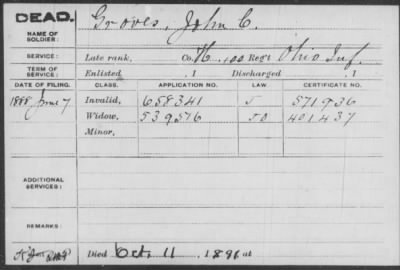 DEAD.
Groves, John C.
NAME OF SOLDIER:
SERVICE:
Late rank, Co. H, 100 Reg't Ohio Inf.
TERM OF SERVICE:
Enlisted , 1 Discharged , 1
DATE OF FILING. CLASS. APPLICATION NO. LAW. CERTIFICATE NO.
1888 June 7 Invalid, 658341 571936
Widow, 539516 401437
Minor,
ADDITIONAL SERVICES:
REMARKS:
Died Oct. 11, 1891 at